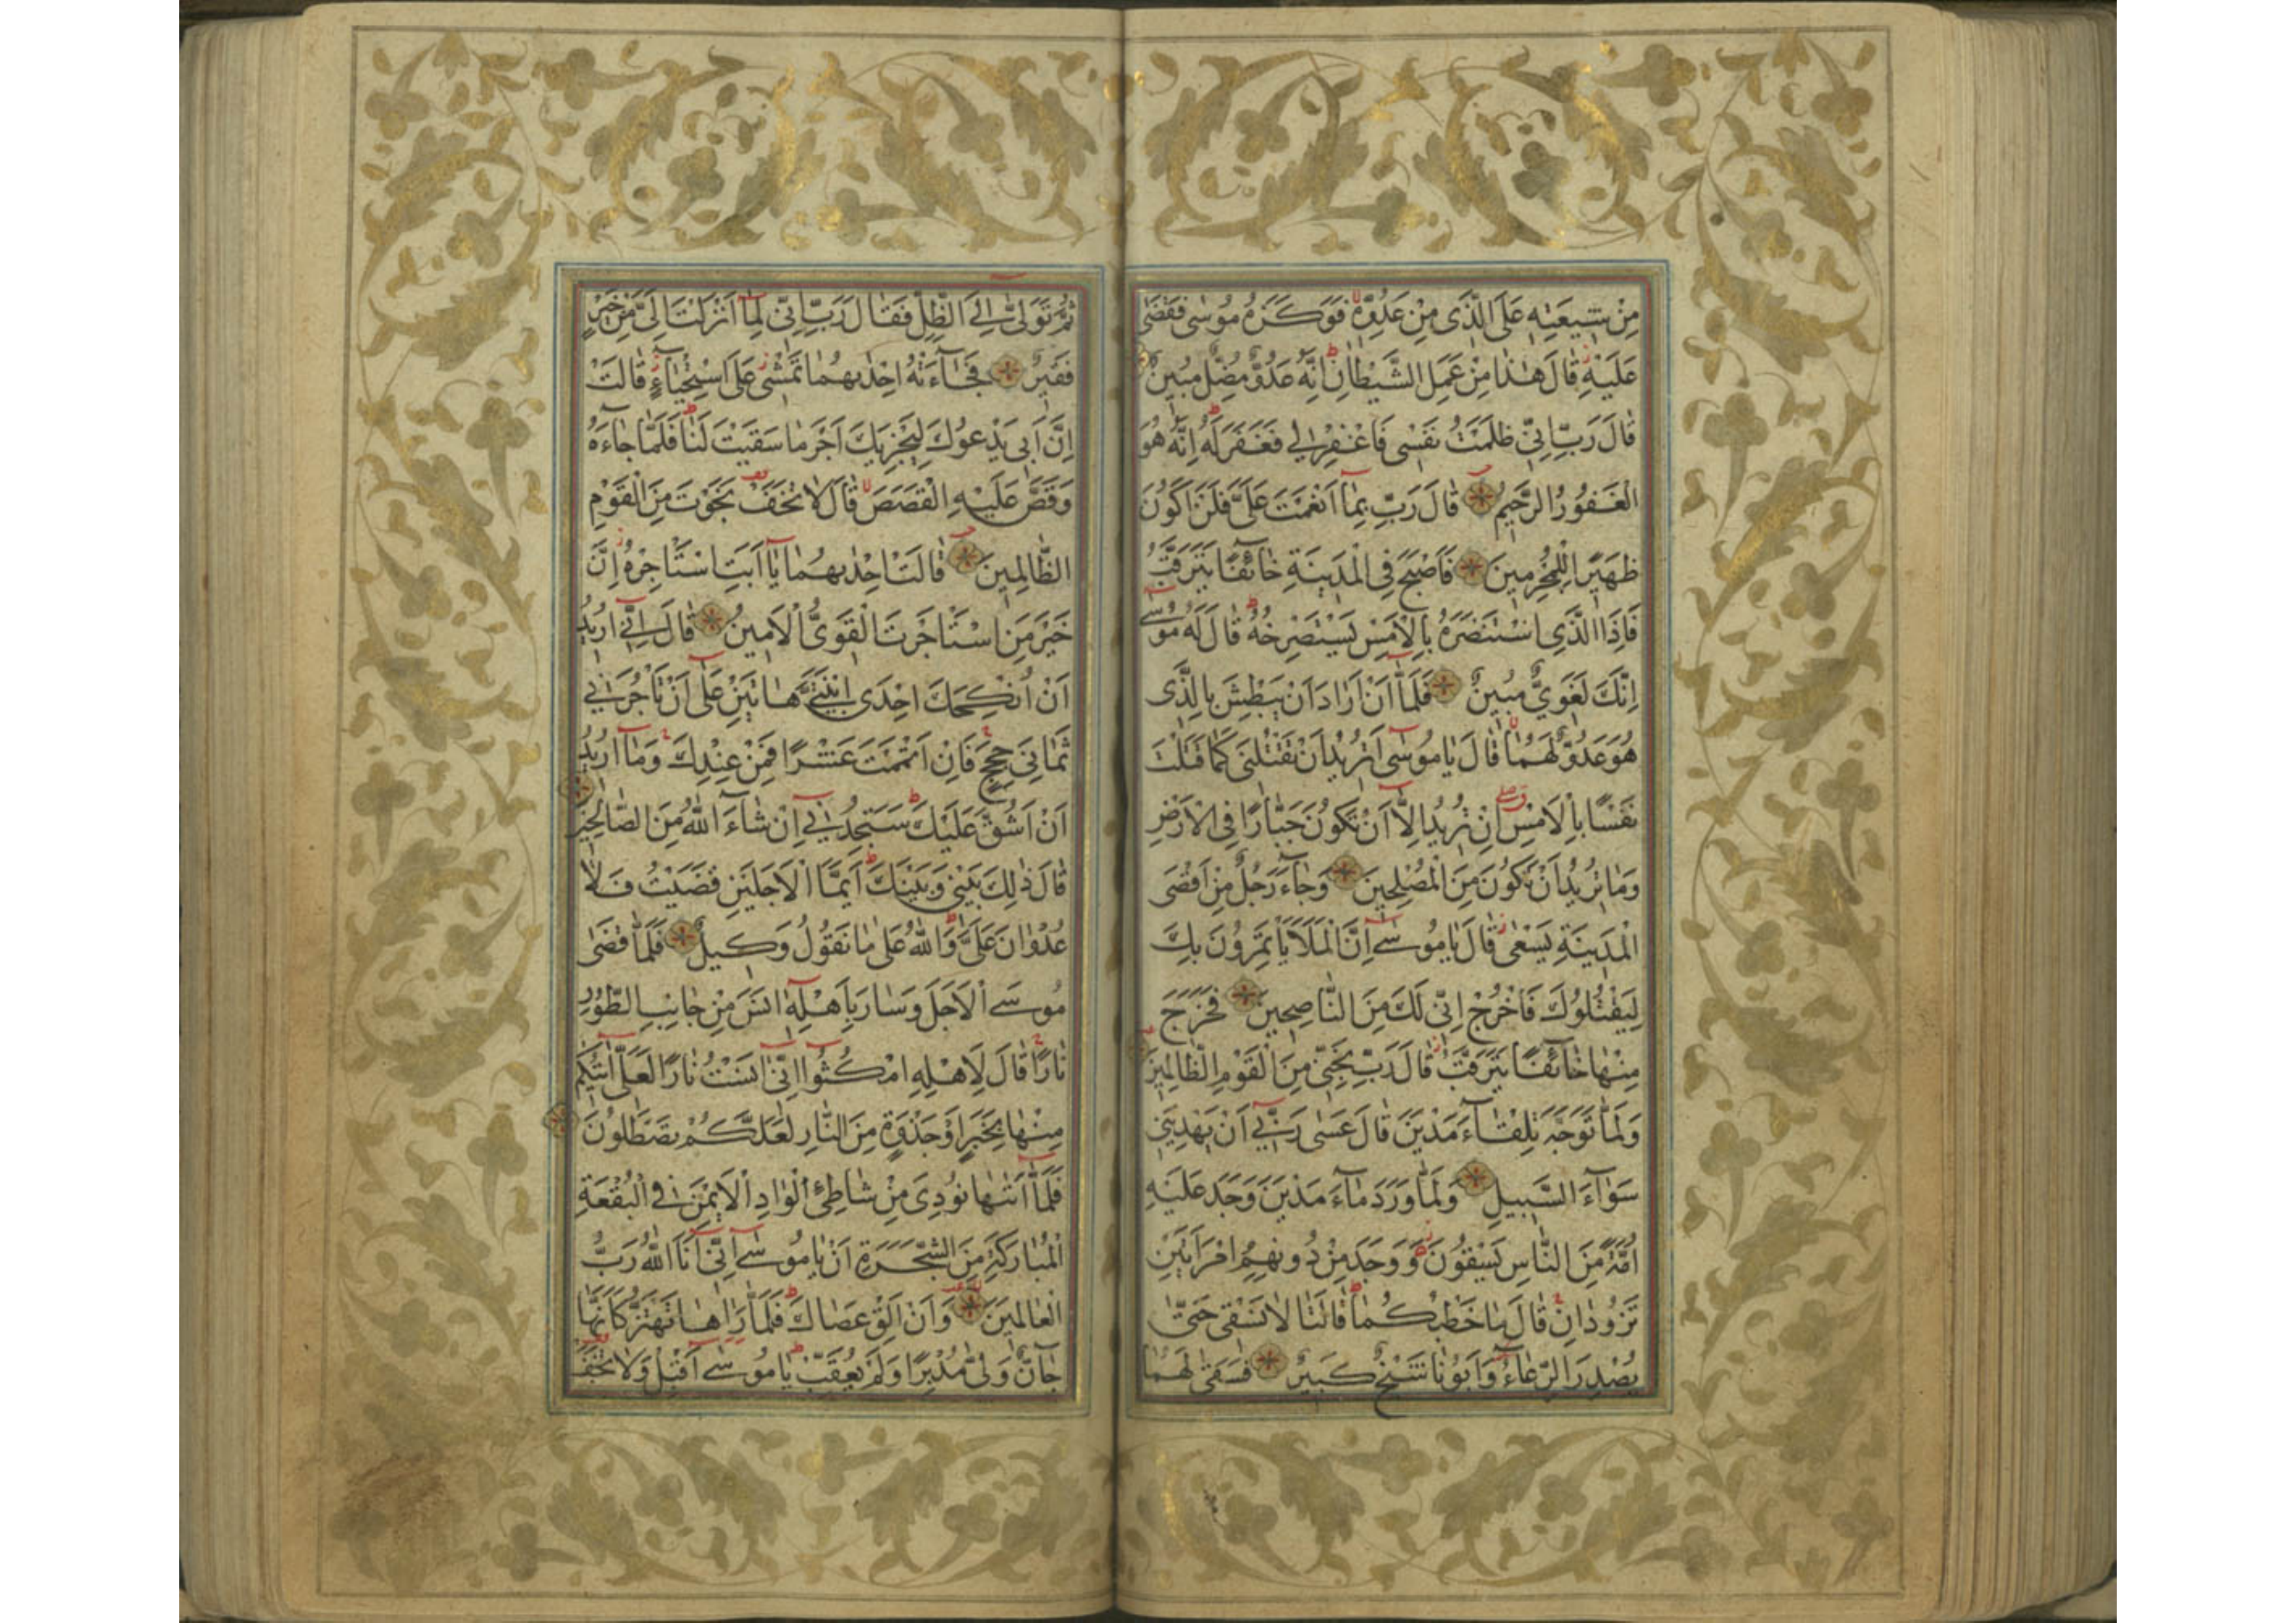 مِنْ شِيعَتِهِ عَلَى الَّذِي مِنْ عَدُوِّهِ فَوَكَزَهُ مُوسٰى فَقَضٰى
عَلَيْهِ قَالَ هٰذَا مِنْ عَمَلِ الشَّيْطَانِ اِنَّهُ عَدُوٌّ مُضِلٌّ مُبِينٌ
قَالَ رَبِّ اِنِّي ظَلَمْتُ نَفْسِي فَاغْفِرْ لِي فَغَفَرَ لَهُ اِنَّهُ هُوَ
الْغَفُورُ الرَّحِيمُ قَالَ رَبِّ بِمَا اَنْعَمْتَ عَلَيَّ فَلَنْ اَكُونَ
ظَهِيرًا لِلْمُجْرِمِينَ فَاَصْبَحَ فِي الْمَدِينَةِ خَائِفًا يَتَرَقَّبُ
فَاِذَا الَّذِي اسْتَنْصَرَهُ بِالْاَمْسِ يَسْتَصْرِخُهُ قَالَ لَهُ مُوسٰى
اِنَّكَ لَغَوِيٌّ مُبِينٌ فَلَمَّا اَنْ اَرَادَ اَنْ يَبْطِشَ بِالَّذِي
هُوَ عَدُوٌّ لَهُمَا قَالَ يَا مُوسٰى اَتُرِيدُ اَنْ تَقْتُلَنِي كَمَا قَتَلْتَ
نَفْسًا بِالْاَمْسِ اِنْ تُرِيدُ اِلَّا اَنْ تَكُونَ جَبَّارًا فِي الْاَرْضِ
وَمَا تُرِيدُ اَنْ تَكُونَ مِنَ الْمُصْلِحِينَ وَجَاءَ رَجُلٌ مِنْ اَقْصَى
الْمَدِينَةِ يَسْعٰى قَالَ يَا مُوسٰى اِنَّ الْمَلَاَ يَأْتَمِرُونَ بِكَ
لِيَقْتُلُوكَ فَاخْرُجْ اِنِّي لَكَ مِنَ النَّاصِحِينَ فَخَرَجَ
مِنْهَا خَائِفًا يَتَرَقَّبُ قَالَ رَبِّ نَجِّنِي مِنَ الْقَوْمِ الظَّالِمِينَ
وَلَمَّا تَوَجَّهَ تِلْقَاءَ مَدْيَنَ قَالَ عَسٰى رَبِّي اَنْ يَهْدِيَنِي
سَوَاءَ السَّبِيلِ وَلَمَّا وَرَدَ مَاءَ مَدْيَنَ وَجَدَ عَلَيْهِ
اُمَّةً مِنَ النَّاسِ يَسْقُونَ وَوَجَدَ مِنْ دُونِهِمُ امْرَاَتَيْنِ
تَذُودَانِ قَالَ مَا خَطْبُكُمَا قَالَتَا لَا نَسْقِي حَتّٰى
يُصْدِرَ الرِّعَاءُ وَاَبُونَا شَيْخٌ كَبِيرٌ فَسَقٰى لَهُمَا
ثُمَّ تَوَلّٰى اِلَى الظِّلِّ فَقَالَ رَبِّ اِنِّي لِمَا اَنْزَلْتَ اِلَيَّ مِنْ خَيْرٍ
فَقِيرٌ فَجَاءَتْهُ اِحْدٰيهُمَا تَمْشِي عَلَى اسْتِحْيَاءٍ قَالَتْ
اِنَّ اَبِي يَدْعُوكَ لِيَجْزِيَكَ اَجْرَ مَا سَقَيْتَ لَنَا فَلَمَّا جَاءَهُ
وَقَصَّ عَلَيْهِ الْقَصَصَ قَالَ لَا تَخَفْ نَجَوْتَ مِنَ الْقَوْمِ
الظَّالِمِينَ قَالَتْ اِحْدٰيهُمَا يَا اَبَتِ اسْتَأْجِرْهُ اِنَّ
خَيْرَ مَنِ اسْتَأْجَرْتَ الْقَوِيُّ الْاَمِينُ قَالَ اِنِّي اُرِيدُ
اَنْ اُنْكِحَكَ اِحْدَى ابْنَتَيَّ هَاتَيْنِ عَلٰى اَنْ تَأْجُرَنِي
ثَمَانِيَ حِجَجٍ فَاِنْ اَتْمَمْتَ عَشْرًا فَمِنْ عِنْدِكَ وَمَا اُرِيدُ
اَنْ اَشُقَّ عَلَيْكَ سَتَجِدُنِي اِنْ شَاءَ اللّٰهُ مِنَ الصَّالِحِينَ
قَالَ ذٰلِكَ بَيْنِي وَبَيْنَكَ اَيَّمَا الْاَجَلَيْنِ قَضَيْتُ فَلَا
عُدْوَانَ عَلَيَّ وَاللّٰهُ عَلٰى مَا نَقُولُ وَكِيلٌ فَلَمَّا قَضٰى
مُوسَى الْاَجَلَ وَسَارَ بِاَهْلِهِ اٰنَسَ مِنْ جَانِبِ الطُّورِ
نَارًا قَالَ لِاَهْلِهِ امْكُثُوا اِنِّي اٰنَسْتُ نَارًا لَعَلِّي اٰتِيكُمْ
مِنْهَا بِخَبَرٍ اَوْ جَذْوَةٍ مِنَ النَّارِ لَعَلَّكُمْ تَصْطَلُونَ
فَلَمَّا اَتٰيهَا نُودِيَ مِنْ شَاطِئِ الْوَادِ الْاَيْمَنِ فِي الْبُقْعَةِ
الْمُبَارَكَةِ مِنَ الشَّجَرَةِ اَنْ يَا مُوسٰى اِنِّي اَنَا اللّٰهُ رَبُّ
الْعَالَمِينَ وَاَنْ اَلْقِ عَصَاكَ فَلَمَّا رَاٰهَا تَهْتَزُّ كَاَنَّهَا
جَانٌّ وَلّٰى مُدْبِرًا وَلَمْ يُعَقِّبْ يَا مُوسٰى اَقْبِلْ وَلَا تَخَفْ